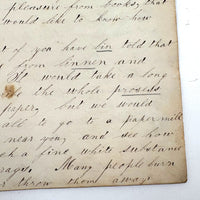 pleasure from books, that
would like to know how
t if you have bin told that
s from linnen and
It would take a long
le the whole prosess
paper, but we would
all to go to a paper mill
near you, and see how
ch a fine white substance
rags. Many people burn
r throw them away